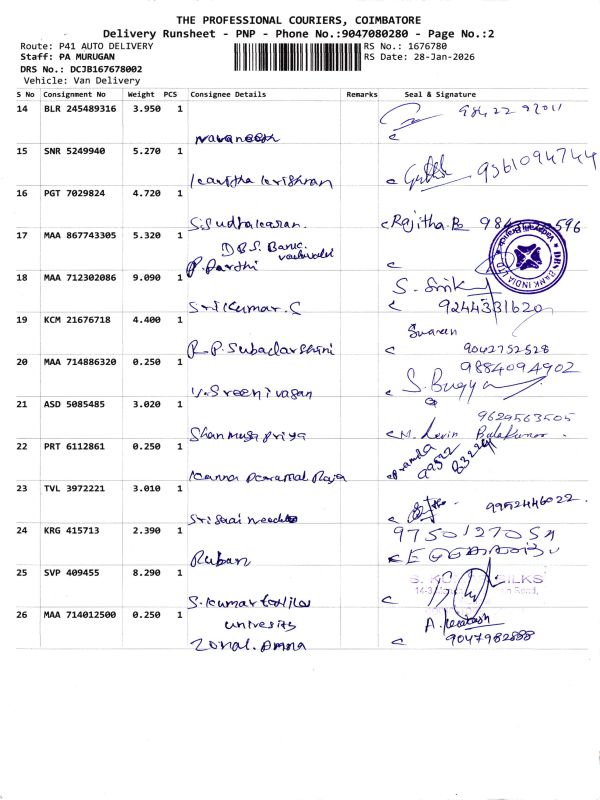 THE PROFESSIONAL COURIERS, COIMBATORE
Delivery Runsheet - PNP - Phone No.:9047080280 - Page No.:2
Route: P41 AUTO DELIVERY
RS No.: 1676780
Staff: PA MURUGAN
RS Date: 28-Jan-2026
DRS No.: DCJB167678002
Vehicle: Van Delivery
S No Consignment No Weight PCS Consignee Details Remarks Seal & Signature
14 BLR 245489316 3.950 1
Navaneeth
15 SNR 5249940 5.270 1 9361094744
Kavitha Krishnan
16 PGT 7029824 4.720 1
S. Sudhakaran. Rajitha.B
17 MAA 867743305 5.320 1 DBS. Bank.
P. Parthi
DBS BANK INDIA
18 MAA 712302086 9.090 1 S. Srik
Srikumar.S 9244331620
19 KCM 21676718 4.400 1
R.P. Subadarshini 9042752528
20 MAA 714886320 0.250 1 9884094902
V. Sreenivasan S.
21 ASD 5085485 3.020 1 9629563505
Shanmuga priya M. Levin Balakumar.
22 PRT 6112861 0.250 1
Kanna Perumal Raja
23 TVL 3972221 3.010 1 9952446022
Sri Sai
24 KRG 415713 2.390 1
Ruban
25 SVP 409455 8.290 1
S. Kumar
SILKS
26 MAA 714012500 0.250 1 university A.
Zonal. 9047982888